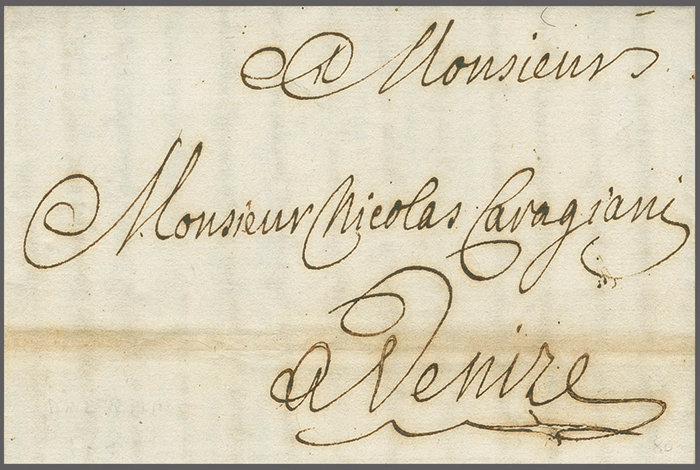 A Monsieur
Monsieur Nicolas Caragiani
a Venize